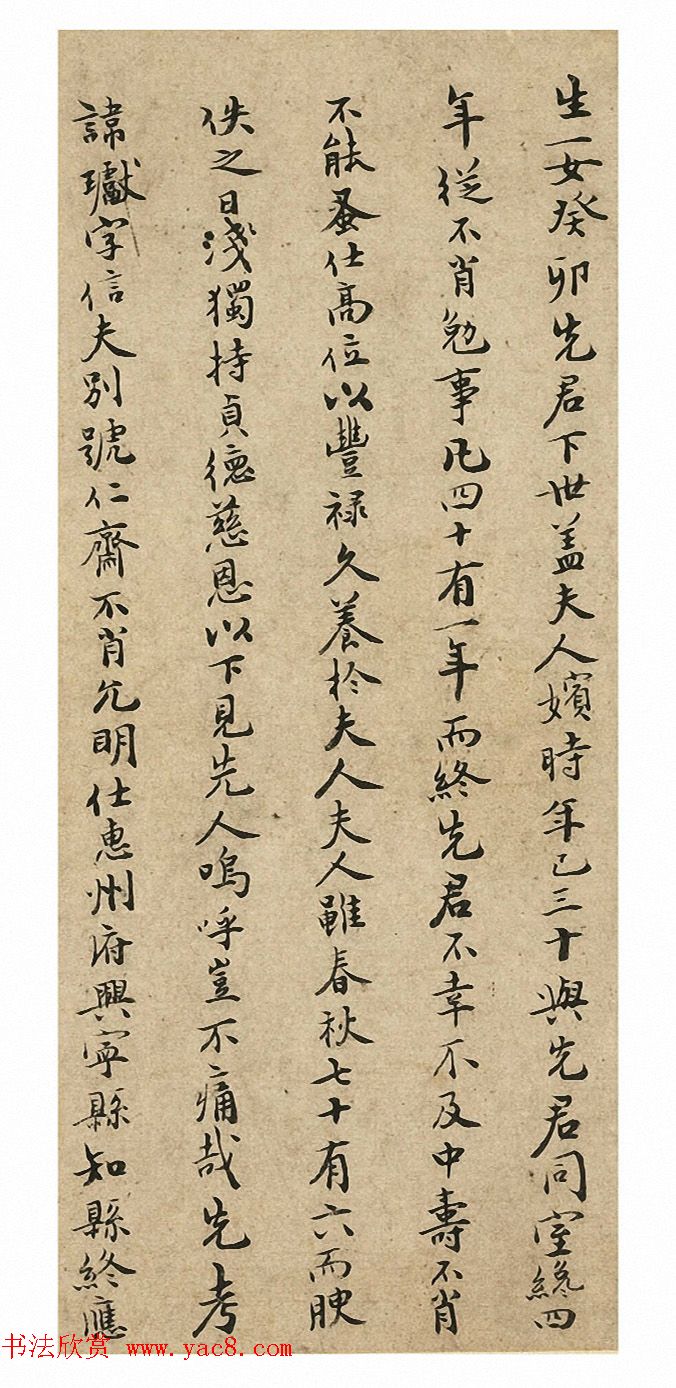 生一女癸卯先君下世盖夫人嬪時年已三十與先君同室纔四
年從不肖勉事凡四十有一年而終先君不幸不及中壽不肖
不能蚤仕高位以豐禄久養於夫人夫人雖春秋七十有六而腴
佚之日淺獨持貞德慈恩以下見先人嗚呼豈不痛哉先考
諱瓛字信夫別號仁齋不肖允明仕惠州府興寧縣知縣終應
书法欣赏 www.yac8.com